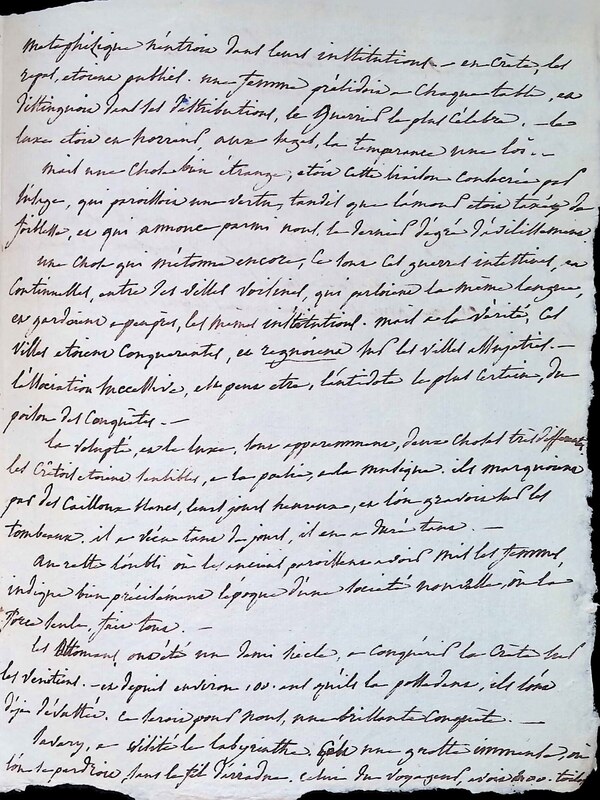 metaphisique n'entroit dans leurs institutions — en Crète, les
repas, etoient publics. une femme présidoit a chaque table, et
distinguoit dans ses distributions, le guerrier le plus célebre. — le
luxe etoit en horreur, aux sages, la temperance une loi. —
mais une chose bien étrange, etoit cette liaison consacrée par
l'usage, qui paroissoit une vertu, tandis que l'amour etoit taxé de
foiblesse, et qui annonce parmi nous, le dernier dégré d'avilissement.
une chose qui m'etonne encore, ce sont ces guerres intestines, et
continuelles, entre des villes voisines, qui parloient la même langue,
et gardoient a peu près, les mêmes institutions. mais a la vérité, ces
villes etoient conquerantes, et regnoient sur les villes assujeties. —
l'association successive, est peut etre, l'antidote le plus certain, du
poison des conquètes. —
la volupté, et le luxe, sont apparemment, deux choses très differentes
les Crètois etoient sensibles, a la poësie, a la musique. ils marquoient
par des cailloux blancs, leurs jours heureux, et l'on gravoit sur les
tombeaux. il a vécu tant de jours, il en a duré tant. —
au reste l'oubli où les anciens paroissent avoir mis les femmes,
indique bien précisément l'époque d'une societé nouvelle, où la
force seule, fait tout. —
les Ottomans ont été un demi siècle, a conquérir la Crète sur
les vénitiens. — et depuis environ 100. ans qu'ils la possedent, ils l'ont
déja dévastée. ce seroit pour nous, une brillante conquète. —
Savary, a visité le labyrinthe. c'est une grotte immense, où
l'on se perdroit, sans le fil d'ariadne. celui du voyageur, avoit 400. toises